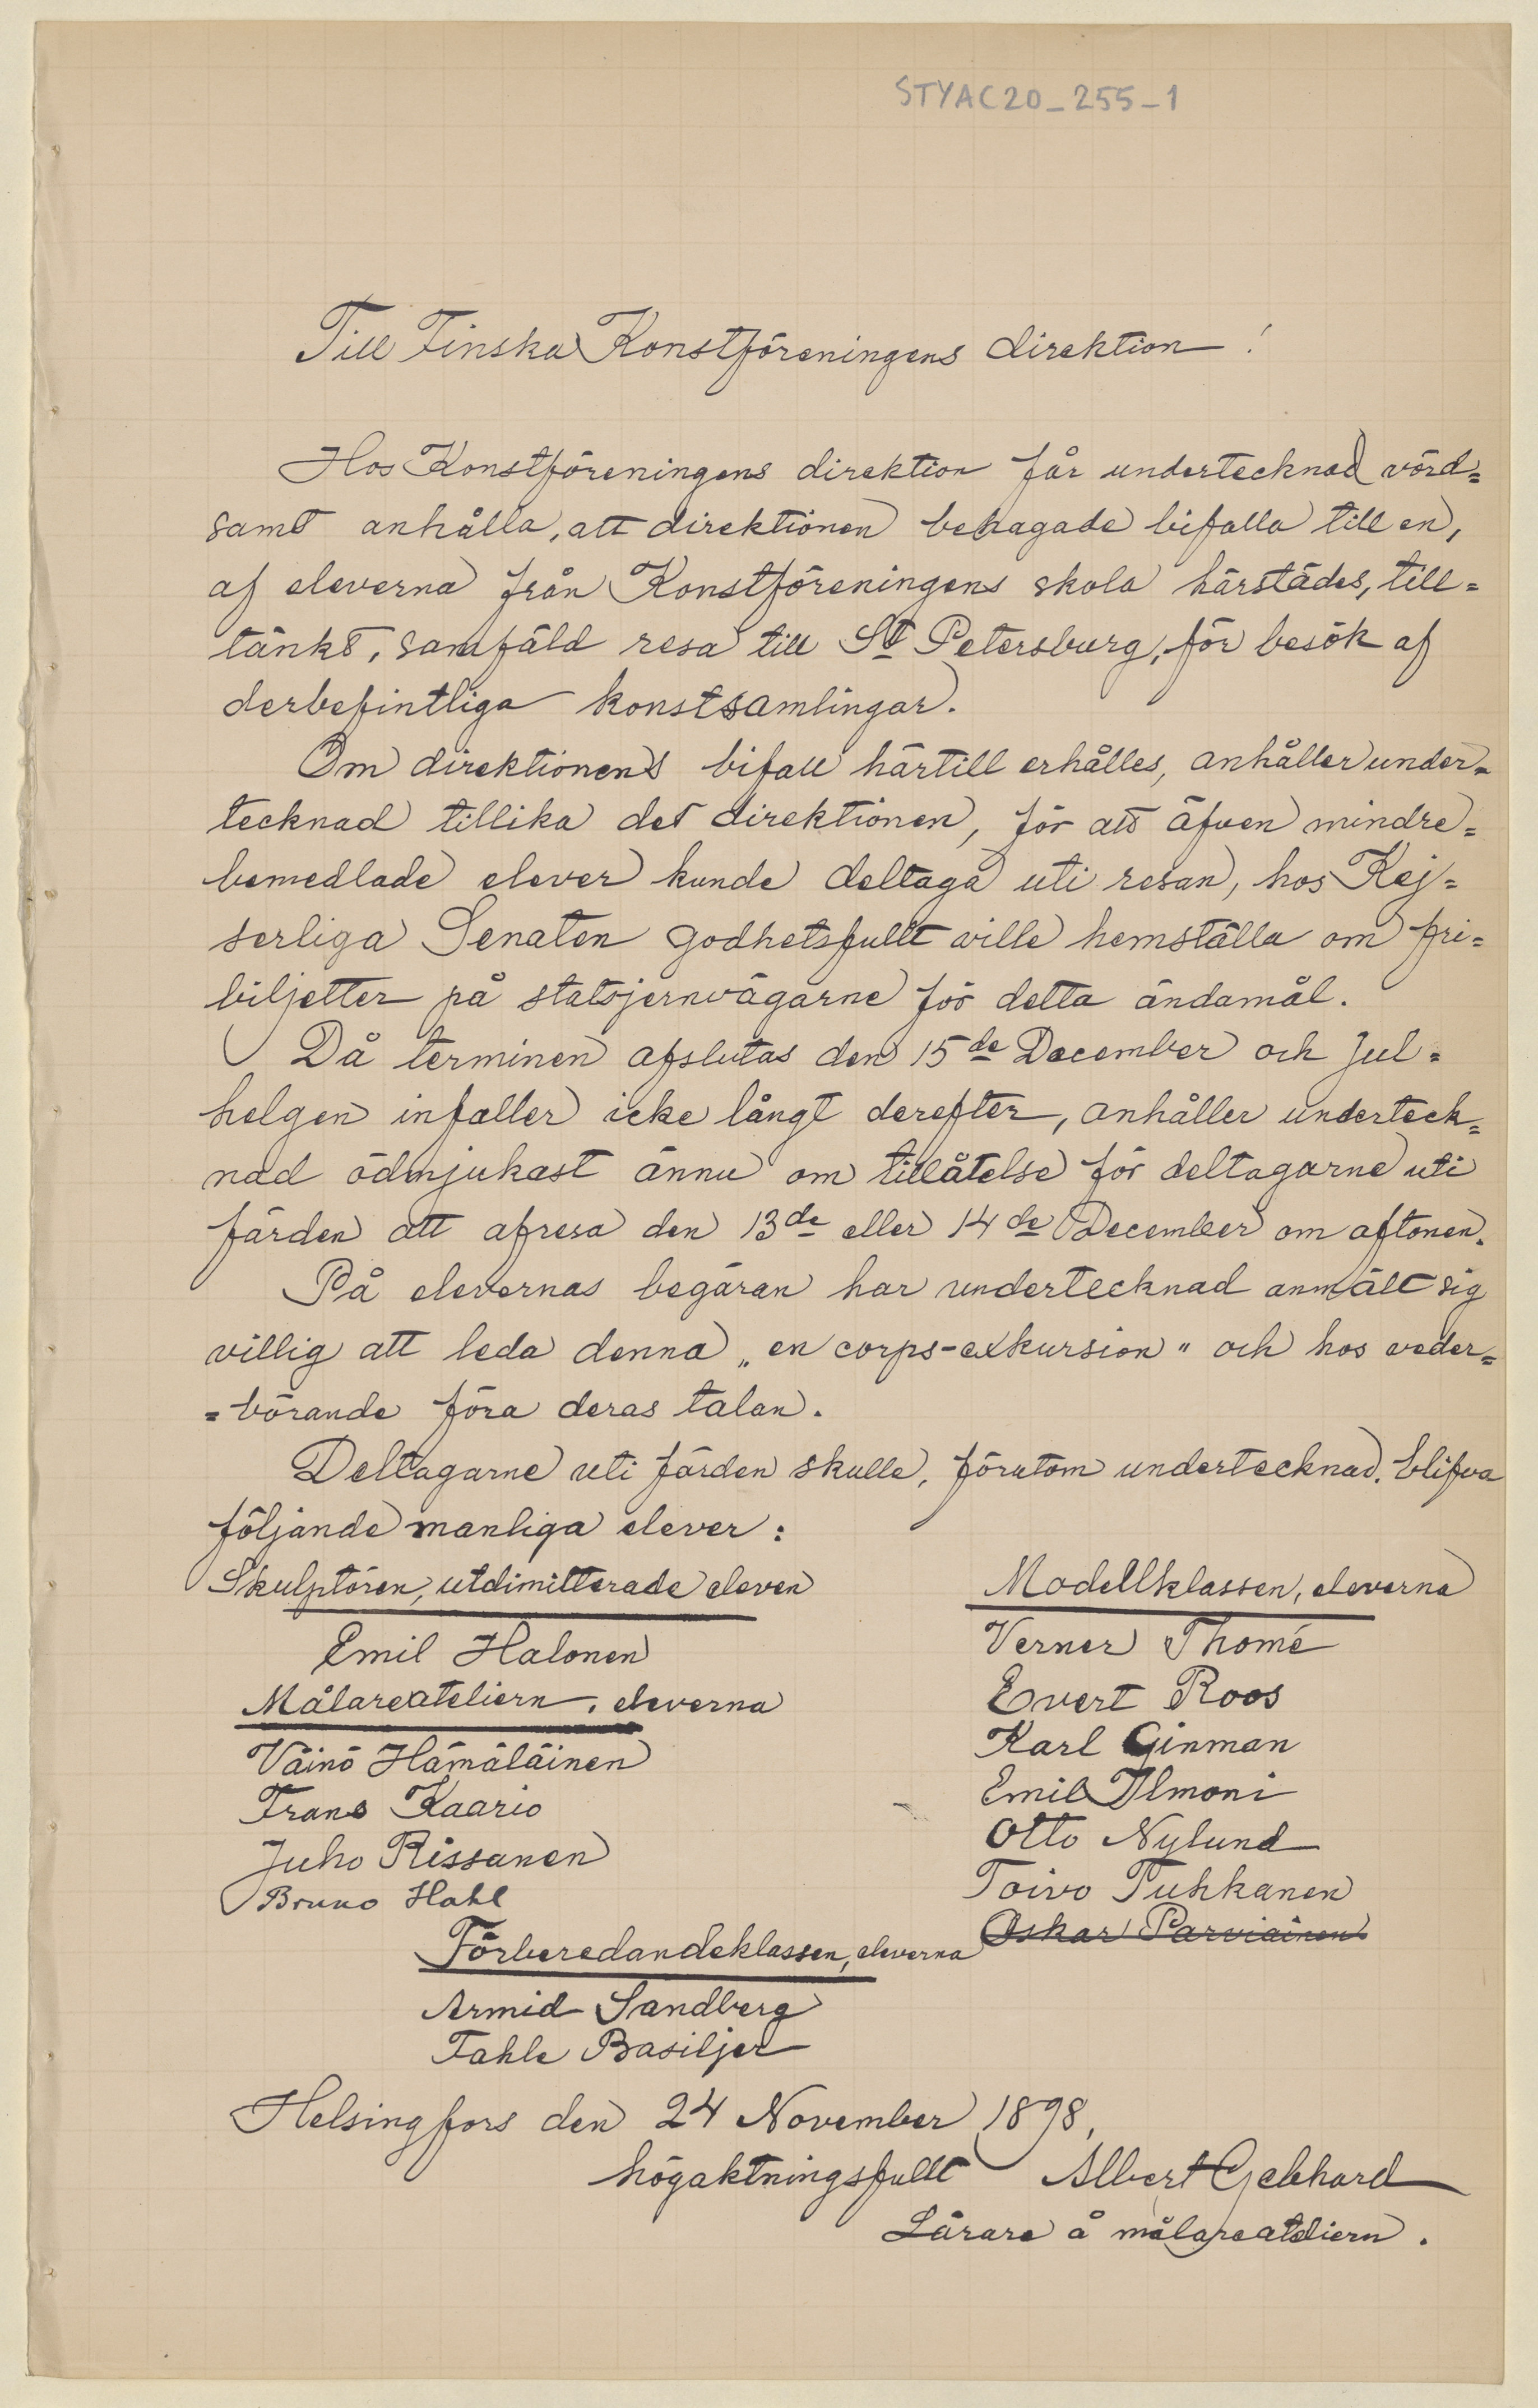 STYAC20_255_1
Till Finska Konstföreningens direktion!
Hos Konstföreningens direktion får undertecknad vörd=
samt anhålla, att direktionen behagade bifalla till en,
af eleverna från Konstföreningens skola härstädes, till=
tänkt, samfäld resa till St Petersburg, för besök af
derbefintliga konstsamlingar.
Om direktionens bifall härtill erhålles, anhåller under=
tecknad tillika det direktionen, för att äfven mindre=
bemedlade elever kunde deltaga uti resan, hos Kej=
serliga Senaten godhetsfullt ville hemställa om fri=
biljetter på statsjernvägarne för detta ändamål.
Då terminen afslutas den 15de December och Jul=
helgen infaller icke långt derefter, anhåller underteck=
nad ödmjukast ännu om tillåtelse för deltagarne uti
färden att afresa den 13de eller 14de December om aftonen.
På elevernas begäran har undertecknad anmält sig
villig att leda denna „en corps-exkursion" och hos veder=
=börande föra deras talan.
Deltagarne uti färden skulle, förutom undertecknad, blifva
följande manliga elever:
Skulptören, utdimitterade eleven
Emil Halonen
Målareateliern, eleverna
Väinö Hämäläinen
Frans Kaario
Juho Rissanen
Bruno Hahl
Modellklassen, eleverna
Verner Thomé
Evert Roos
Karl Ginman
Emil Ilmoni
Otto Nylund
Toivo Tuhkanen
Oskar Parviainen
Förberedandeklassen, eleverna
Armid Sandberg
Fahle Basiljer
Helsingfors den 24 November 1898,
högaktningsfullt Albert Gebhard
Lärare å målareateliern.